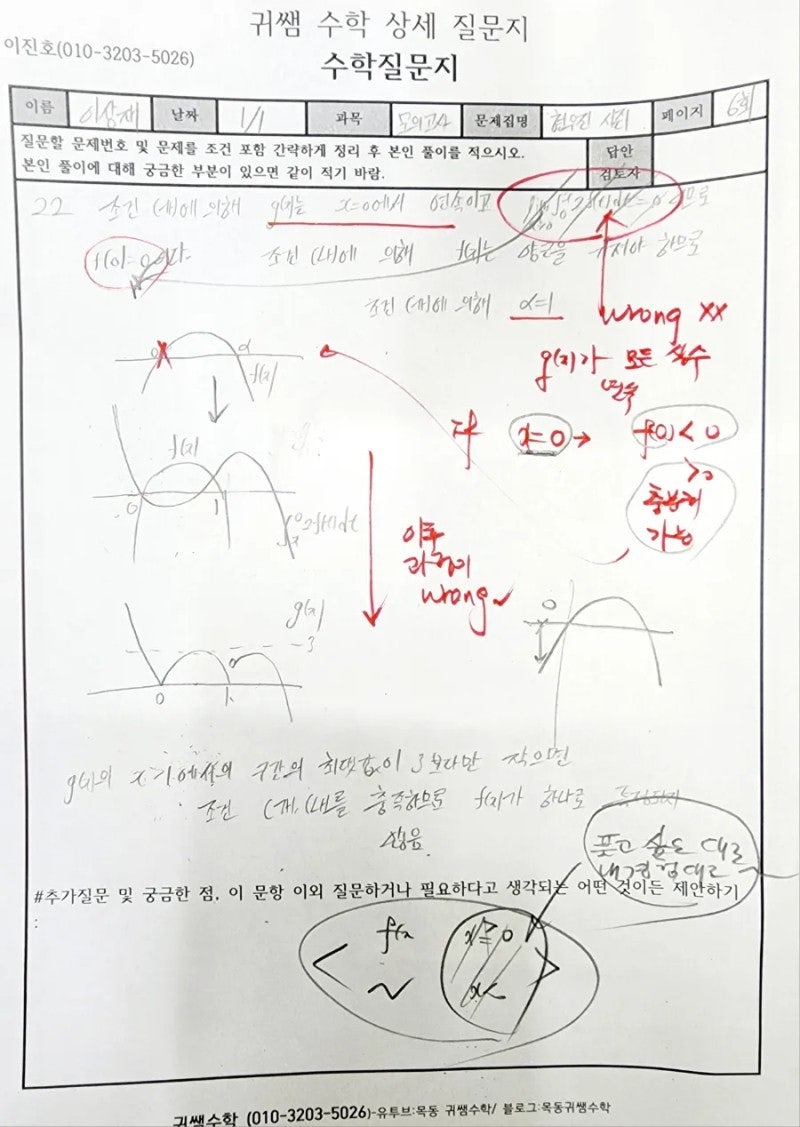 귀쌤 수학 상세 질문지
이진호(010-3203-5026)
수학질문지
이름 이삼재 날짜 1/1 과목 모의고사 문제집명 현우진 페이지 6회
질문할 문제번호 및 문제를 조건 포함 간략하게 정리 후 본인 풀이를 적으시오.
본인 풀이에 대해 궁금한 부분이 있으면 같이 적기 바람.
답안
검토자
22 조건 (나)에 의해 g(x)는 x=0에서 연속이고 =0 므로
f(0)=0이다. 조건 (나)에 의해 f(x)는 양근을 가져야 하므로
조건 (나)에 의해 α=1
wrong xx
g(x)가 모든 실수
연속
0 α f(x)
x=0 → f(0)<0
>0
충분히
가능
f(x)
0 1
이후
과정이
wrong
g(x)
3
0 1
0
g(x)의 x>1에서의 구간의 최댓값이 3보다만 작으면
조건 (가), (나)를 충족하므로 f(x)가 하나로 특정되지
않음
풀고 싶은 대로
내 경험대로
#추가질문 및 궁금한 점, 이 문항 이외 질문하거나 필요하다고 생각되는 어떤 것이든 제안하기
:
f(x x≥0
~ x<
귀쌤수학 (010-3203-5026)-유투브:목동 귀쌤수학/ 블로그:목동귀쌤수학